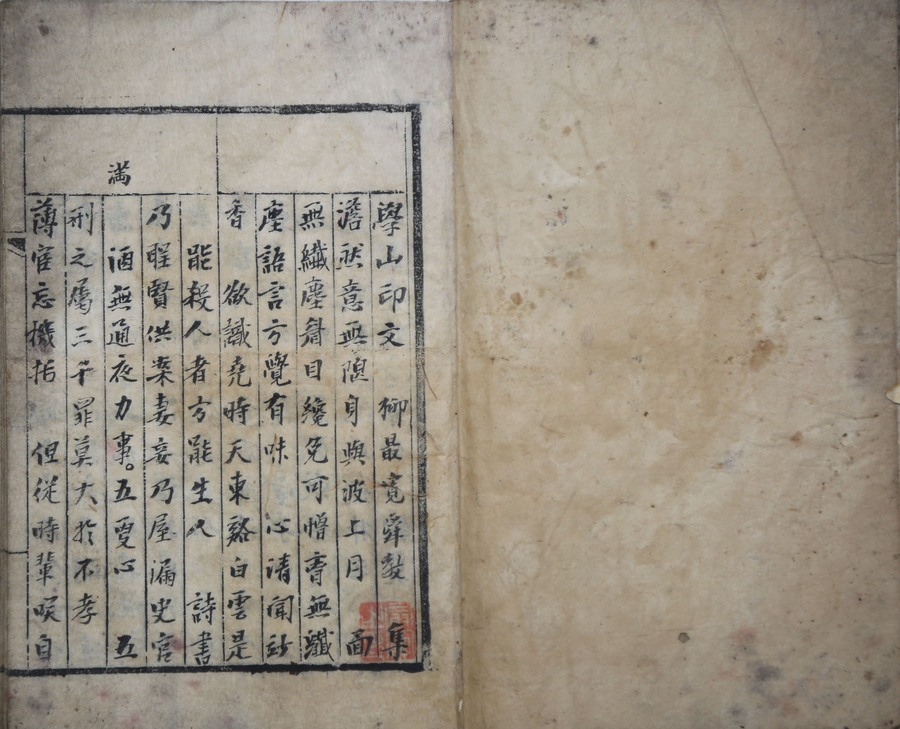 學山印文 柳最寬舜敎 集
澹然意無隕身與波上月 面
無纖塵眉目纔免可憎胷無纖
塵語言方覺有味 心清聞妙
香 欲識堯時天東谿白雲是
能殺人者方能生人 詩書
乃聖賢供案妻妾乃屋漏史官
滿
酒無通夜力事。五更心 五
刑之屬三千罪莫大於不孝
薄宦忘機括 但從時輩唉自